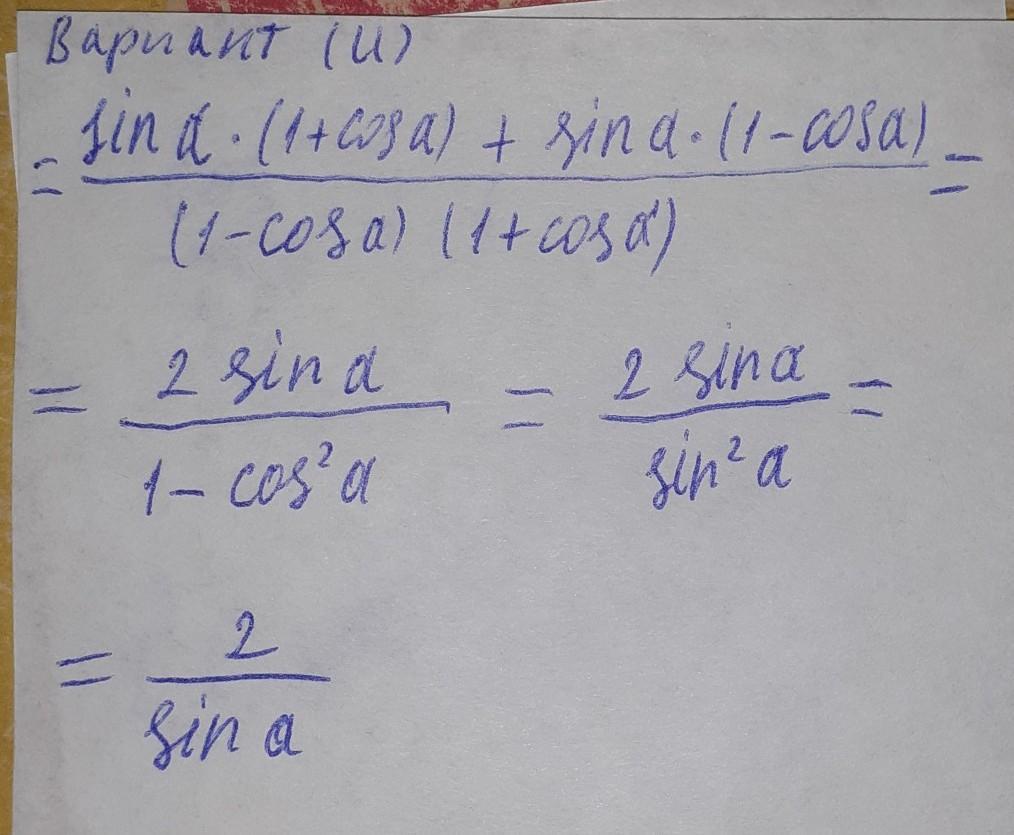 Вариант (И)
= \frac{sin α · (1+cos α) + sin α · (1-cos α)}{(1-cos α) (1+cos α)} =
= \frac{2 sin α}{1 - cos² α} = \frac{2 sin α}{sin² α} =
= \frac{2}{sin α}